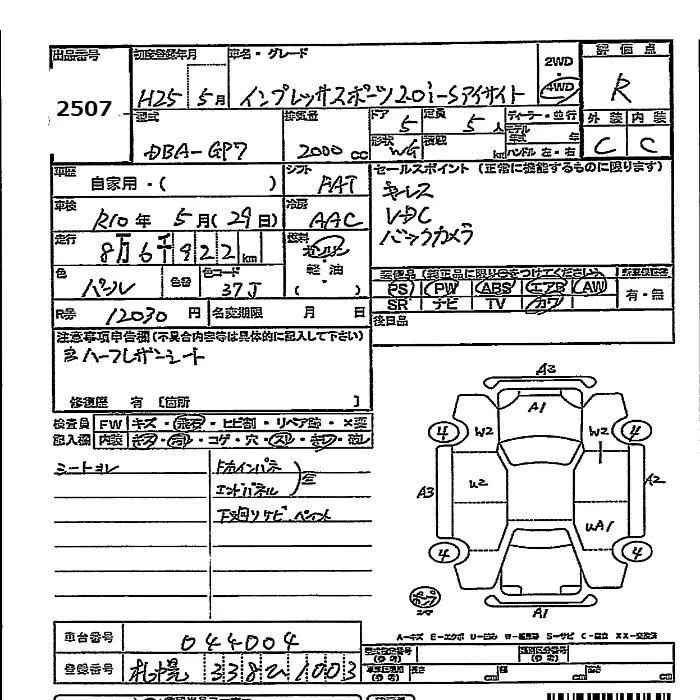 出品番号
2507
初度登録年月
H25 5月
車名・グレード
インプレッサスポーツ2.0i-Sアイサイト
2WD
4WD
評価点
R
型式
DBA-GP7
排気量
2000 cc
ドア 5
定員 5人
形状 WG
積載
ディーラー・並行
モデル年式 年
ハンドル 左・右
外装 内装
C C
車歴
自家用・( )
シフト FAT
車検
R10年 5月(29日)
冷房 AAC
走行
8万6千922km
燃料
ガソリン
軽油
( )
色 パール
色替
色コード 37J
R券 12030円
名変期限 月 日
セールスポイント(正常に機能するものに限ります)
キーレス
VDC
バックカメラ
装備品(純正品に限り○をつけてください)
PS PW ABS エアB AW
SR ナビ TV カワ
有・無
後日品
注意事項申告欄(不具合内容等は具体的に記入して下さい)
ハーフレザーシート
修復歴 有 〔箇所 〕
検査員
記入欄
FW キズ・飛石・ヒビ割・リペア跡・×要
内装 キズ・汚レ・コゲ・穴・スレ・
シートヨレ
エンドパネル
下廻りサビ、ペイント
A3
A1
W2
W2
4
4
A3
U2
A2
UA1
4
4
A1
A-キズ E-エクボ U-凹み W-補修跡 S-サビ C-腐食 XX-交換済
車台番号 044004
登録番号 札幌 338ひ1003
型式指定番号
類別区分番号
長さ cm 幅 cm 高さ cm